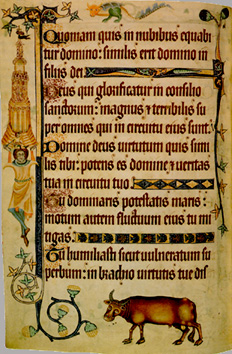 Quoniam quis in nubibus equabi
tur domino: similis erit domino in
filijs dei
Deus qui glorificatur in consilio
sanctorum: magnus et terribilis su
per omnes qui in circuitu eius sunt.
Domine deus virtutum quis simi
lis tibi: potens es domine et veritas
tua in circuitu tuo
Tu dominaris potestatis maris:
motum autem fluctuum eius tu mi
tigas:
Tu humiliasti sicut vulneratum su
perbum: in brachio virtutis tue dis